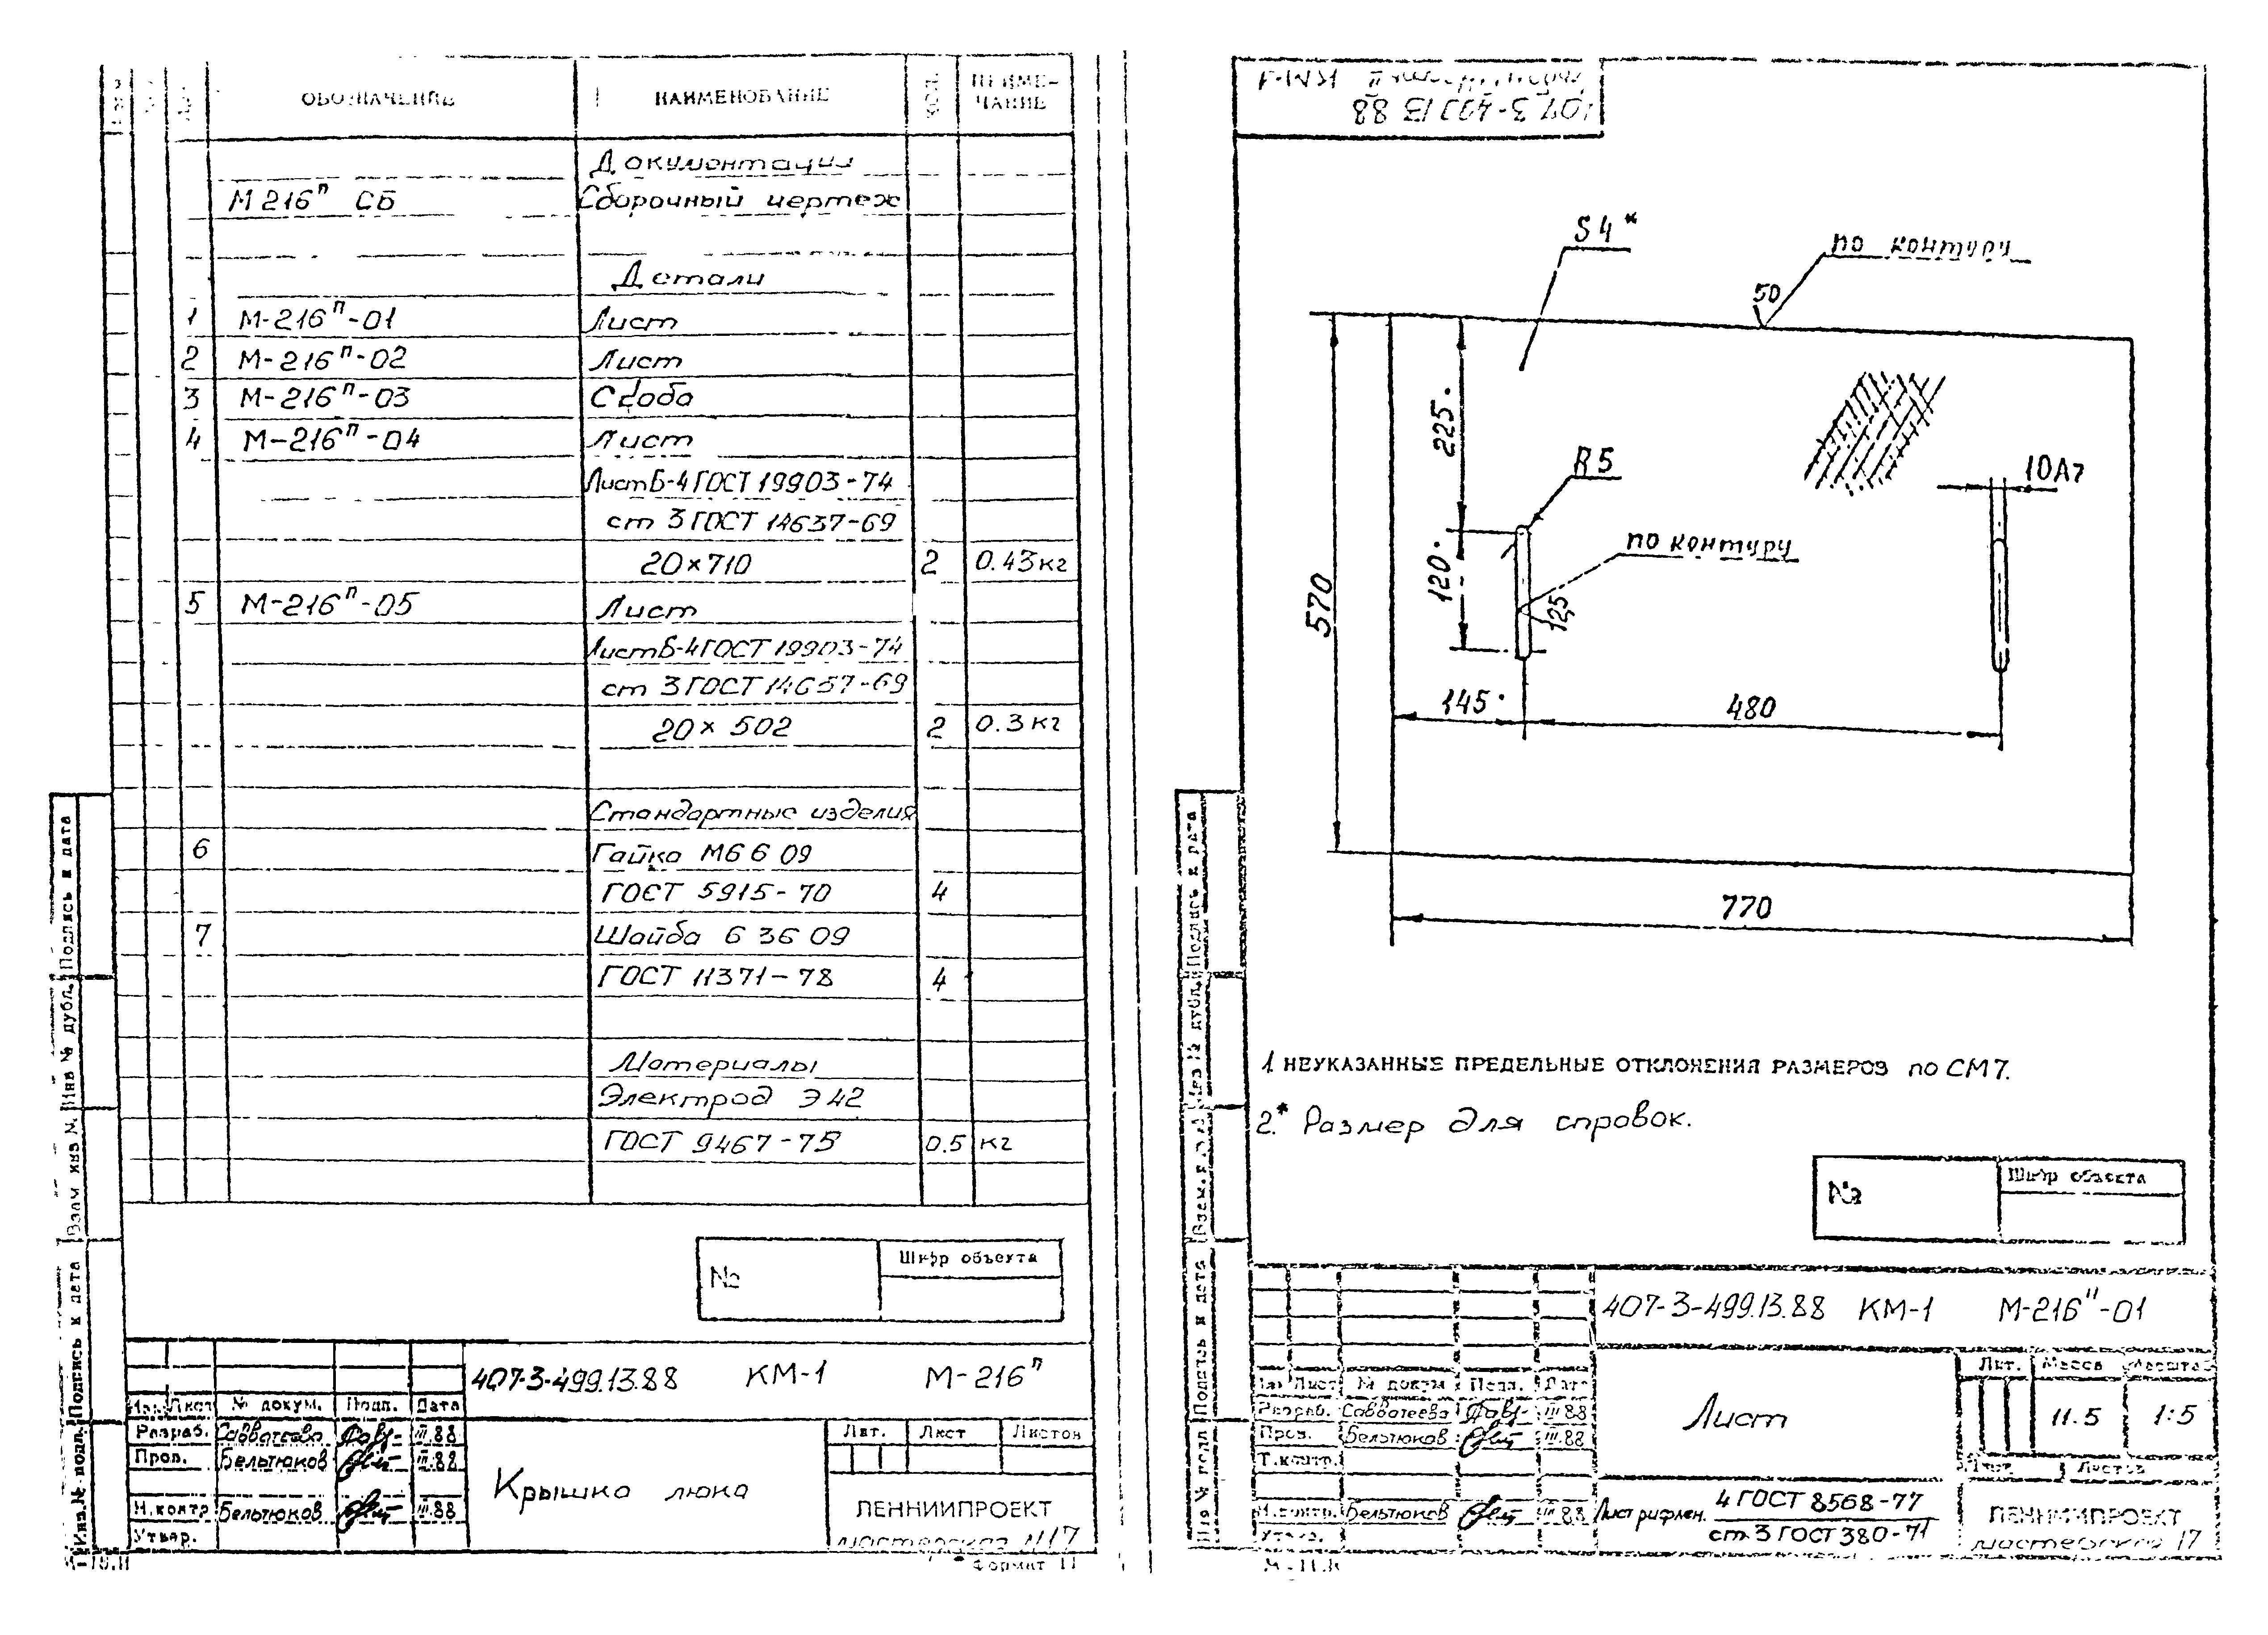 ОБОЗНАЧЕНИЕ НАИМЕНОВАНИЕ КОЛ. ПРИМЕ-
ЧАНИЕ
Документации
М216ᴨ СБ Сборочный чертеж
Детали
1 М-216ᴨ-01 Лист
2 М-216ᴨ-02 Лист
3 М-216ᴨ-03 Скоба
4 М-216ᴨ-04 Лист
Лист Б-4 ГОСТ 19903-74
ст 3 ГОСТ 14637-69
20×710 2 0.43кг
5 М-216ᴨ-05 Лист
Лист Б-4 ГОСТ 19903-74
ст 3 ГОСТ 14637-69
20×502 2 0.3кг
Стандартные изделия
6 Гайка М6 6 09
ГОСТ 5915-70 4
7 Шайба 6 36 09
ГОСТ 11371-78 4
Материалы
Электрод Э42
ГОСТ 9467-75 0.5 кг
№ Шифр объекта
407-3-499.13.88 КМ-1 М-216ᴨ
Изм. Лист № докум. Подп. Дата
Разраб. Савватеева III.88
Пров. Бельтюков III.88
Н.контр Бельтюков III.88
Утвер.
Крышка люка
Лит. Лист Листов
ЛЕННИИПРОЕКТ
мастерская №17
Формат 11
Инв.№ подл. Подпись и дата Взам инв № Инв № дубл. Подпись и дата
407-3-499.13.88
КМ-1
S4*
по контуру
50
225*
R5
10А7
по контуру
120*
12,5
570
145*
480
770
1. НЕУКАЗАННЫЕ ПРЕДЕЛЬНЫЕ ОТКЛОНЕНИЯ РАЗМЕРОВ по СМ7.
2.* Размер для справок.
№ Шифр объекта
407-3-499.13.88 КМ-1 М-216ᴨ-01
Изм Лист № докум Подп. Дата
Разраб. Савватеева III.88
Пров. Бельтюков III.88
Т.контр.
Н.контр. Бельтюков III.88
Утвер.
Лист
Лит. Масса Масштаб
11.5 1:5
Лист Листов
Лист рифлен. 4 ГОСТ 8568-77
ст.3 ГОСТ 380-71
ЛЕННИИПРОЕКТ
мастерская 17
Инв № подл Подпись и дата Взам. Инв № дубл. Подпись и дата